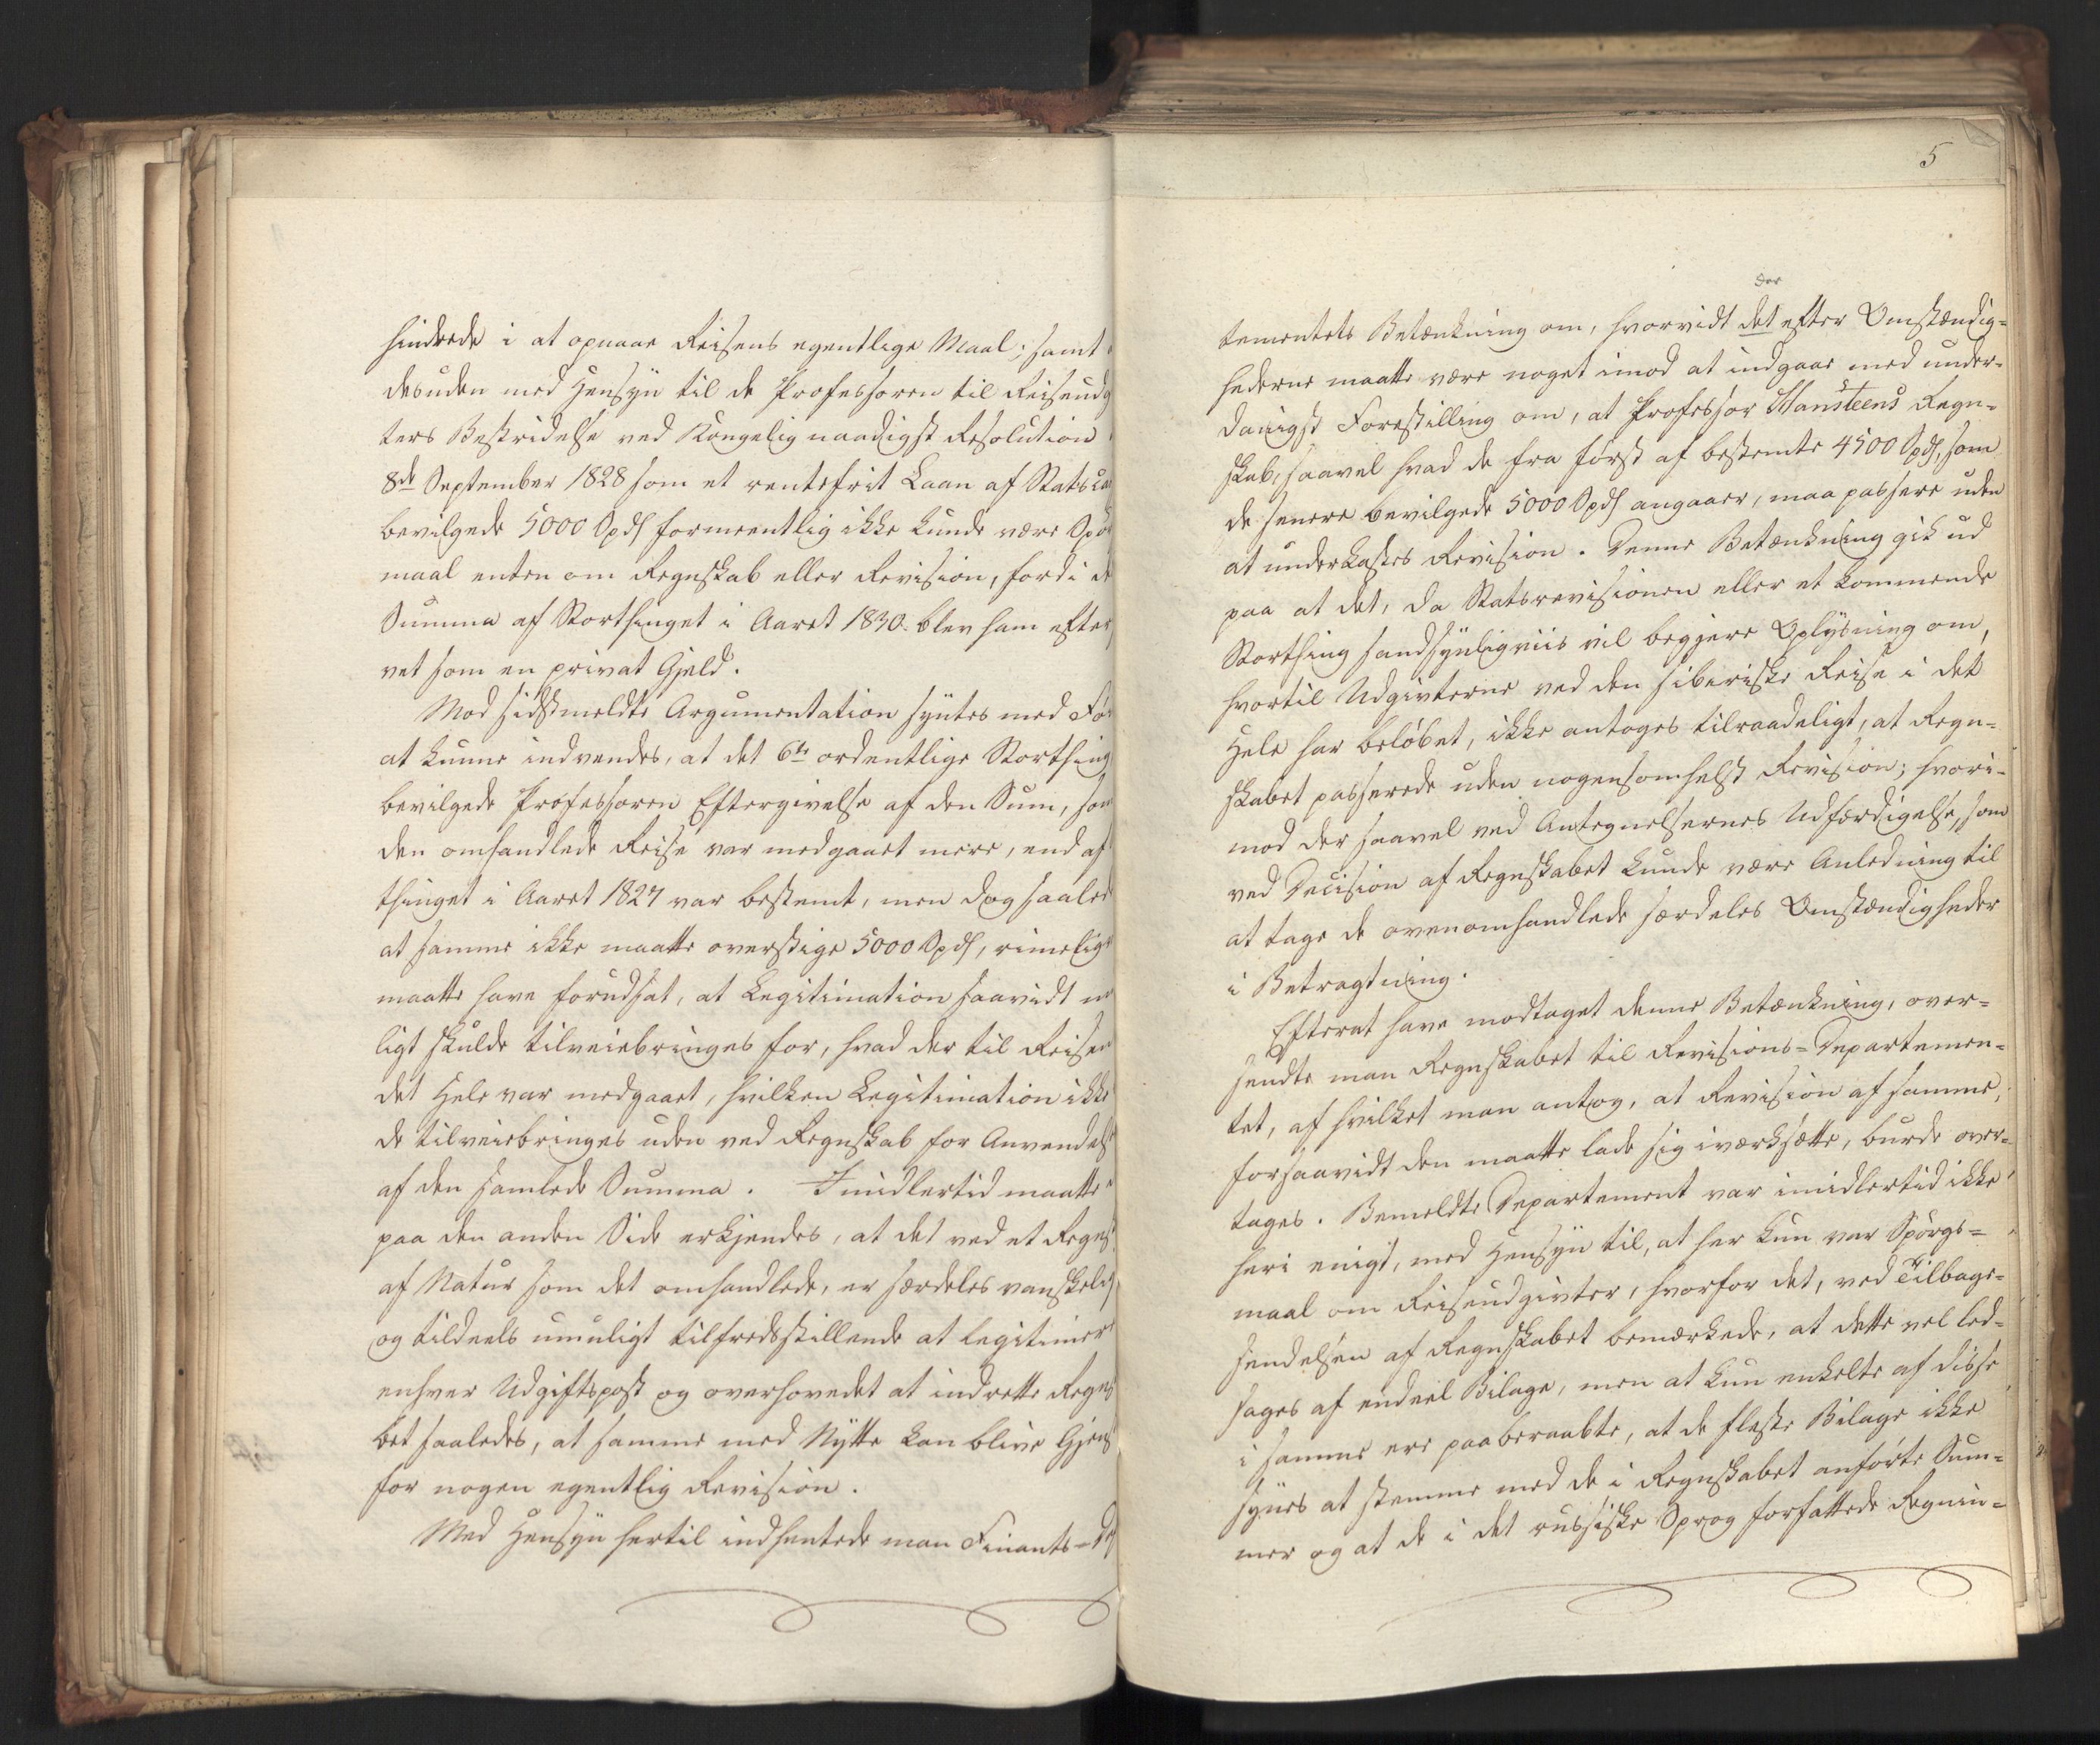 hindrede i at opnaae Reisens egentlige Maal; samt
desuden med Hensyn til de Professoren til Reiseudg
ters Bestridelse ved Kongelig naadigst Resolution
8de September 1828 som et rentefrit Laan af Statsca
bevilgede 5000 Spd formeentlig ikke kunde være Spø
maal enten om Regnskab eller Revision, fordi de
Summa af Storthinget i Aaret 1830 blev ham efter
vet som en privat Gjeld.
Mod sidstmeldte Argumentation syntes med Fø
at kunne indvendes, at det 6te ordentlige Storthing
bevilgede Professoren Eftergivelse af den Sum, som
den omhandlede Reise var medgaaet mere, end af
thinget i Aaret 1827 var bestemt, men dog saalede
at samme ikke maatte overstige 5000 Spd, rimelig
maatte have forudsat, at Legitimation saavidt m
ligt skulde tilveiebringes for, hvad der til Reisen
det Hele var medgaaet, hvilken Legitimation ikke
de tilveiebringes uden ved Regnskab for Anvendelse
af den samlede Summa. Imidlertid maatte
paa den anden Side erkjendes, at det ved et Regns
af Natur som det omhandlede, er særdeles vanskelig
og tildeels umuligt tilfredsstillende at legitimere
enhver Udgiftspost og overhovedet at indrette Regns
bet saaledes, at samme med Nytte kan blive Gjens
for nogen egentlig Revision.
Med Hensyn hertil indhentede man Finants-De
5
der
tementets Betænkning om, hvorvidt det efter Omstændig-
hederne maatte være noget imod at indgaae med under-
danigst Forestilling om, at Professor Hansteens Regn-
skab, saavel hvad de fra først af bestemte 4500 Spd, som
de senere bevilgede 5000 Spd angaaer, maa passere uden
at underkastes Revision. Denne Betænkning gik ud
paa at det, da Statsrevisionen eller et kommende
Storthing sandsynligviis vil begjere Oplysning om,
hvortil Udgivterne ved den siberiske Reise i det
Hele har beløbet, ikke antoges tilraadeligt, at Regn-
skabet passerede uden nogensomhelst Revision; hvori-
mod der saavel ved Antegnelsernes Udfærdigelse, som
ved Decision af Regnskabet kunde være Anledning til
at tage de ovenomhandlede særdeles Omstændigheder
i Betragtning.
Efterat have modtaget denne Betænkning, over-
sendte man Regnskabet til Revisions-Departemen-
tet, af hvilket man antog, at Revision af samme,
forsaavidt den maatte lade sig iværksætte, burde over-
tages. Bemeldte Departement var imidlertid ikke
heri enigt, med Hensyn til, at her kun var Spørgs-
maal om Reiseudgivter, hvorfor det, ved Tilbage-
sendelsen af Regnskabet bemærkede, at dette vel led-
sages af endeel Bilage, men at kun enkelte af disse
i samme ere paaberaabte, at de fleste Bilage ikke
synes at stemme med de i Regnskabet anførte Sum-
mer og at de i det russiske Sprog forfattede Regnin-